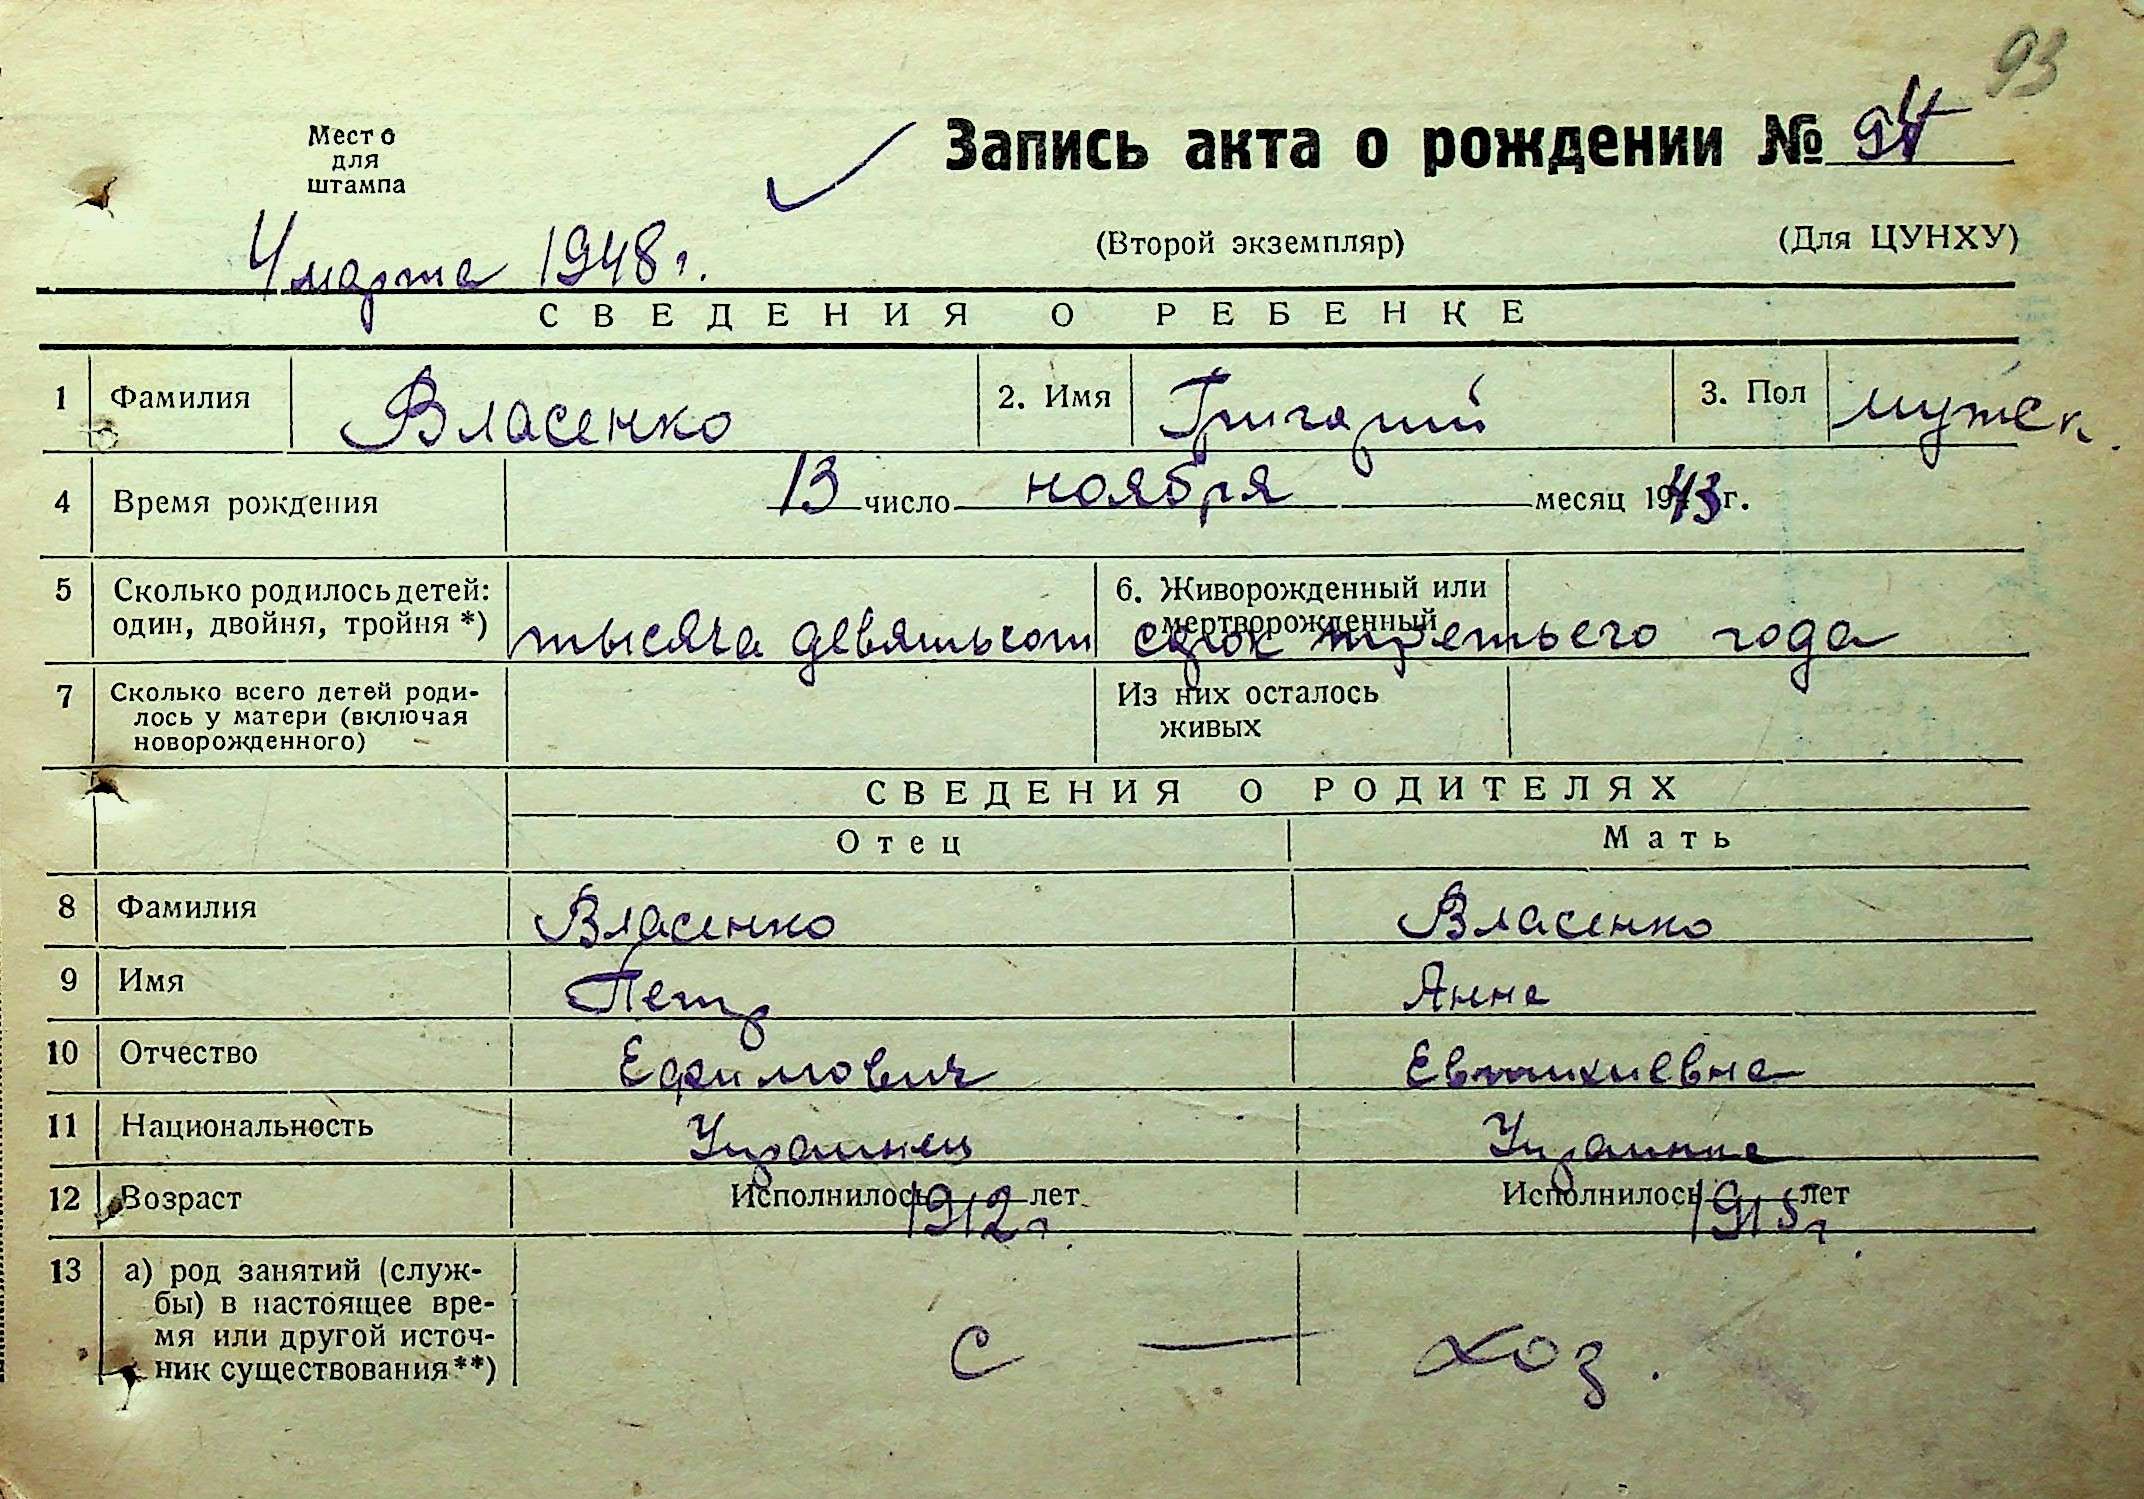 93
Место
для
штампа
Запись акта о рождении № 94
(Второй экземпляр) (Для ЦУНХУ)
4 марта 1948 г.
СВЕДЕНИЯ О РЕБЕНКЕ
1 Фамилия Власенко 2. Имя Григорий 3. Пол мужск.
4 Время рождения 13 число ноября месяц 1943 г.
5 Сколько родилось детей: 6. Живорожденный или
один, двойня, тройня *) мертворожденный
тысяча девятьсот сорок третьего года
7 Сколько всего детей роди- Из них осталось
лось у матери (включая живых
новорожденного)
СВЕДЕНИЯ О РОДИТЕЛЯХ
Отец Мать
8 Фамилия Власенко Власенко
9 Имя Петр Анна
10 Отчество Ефимович Евтихиевна
11 Национальность Украинец Украинка
12 Возраст Исполнилось 1912 г. лет Исполнилось 1915 г. лет
13 а) род занятий (служ-
бы) в настоящее вре-
мя или другой источ-
ник существования**)
с — хоз.